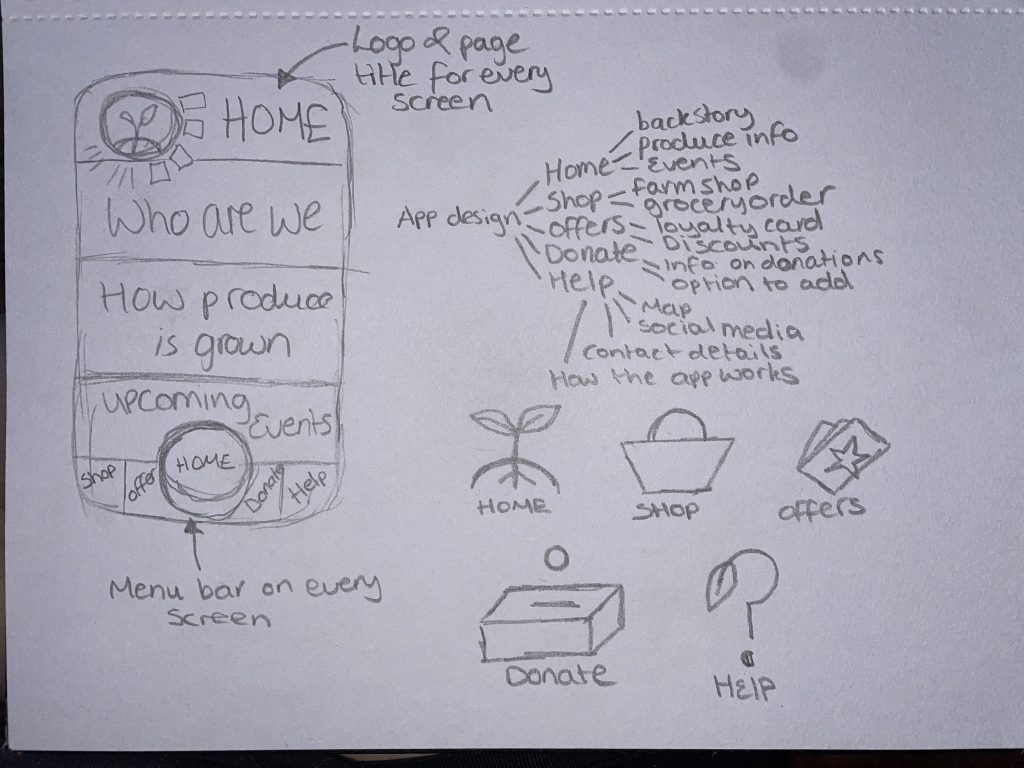 Logo & page
title for every
screen
HOME
Who are we
How produce
is grown
upcoming
Events
Shop
offer
HOME
Donate
Help
Menu bar on every
screen
App design
Home
backstory
produce info
Events
Shop
farm shop
grocery order
offers
loyalty card
Discounts
Donate
info on donations
option to add
Help
Map
social media
contact details
How the app works
HOME
SHOP
offers
Donate
HELP